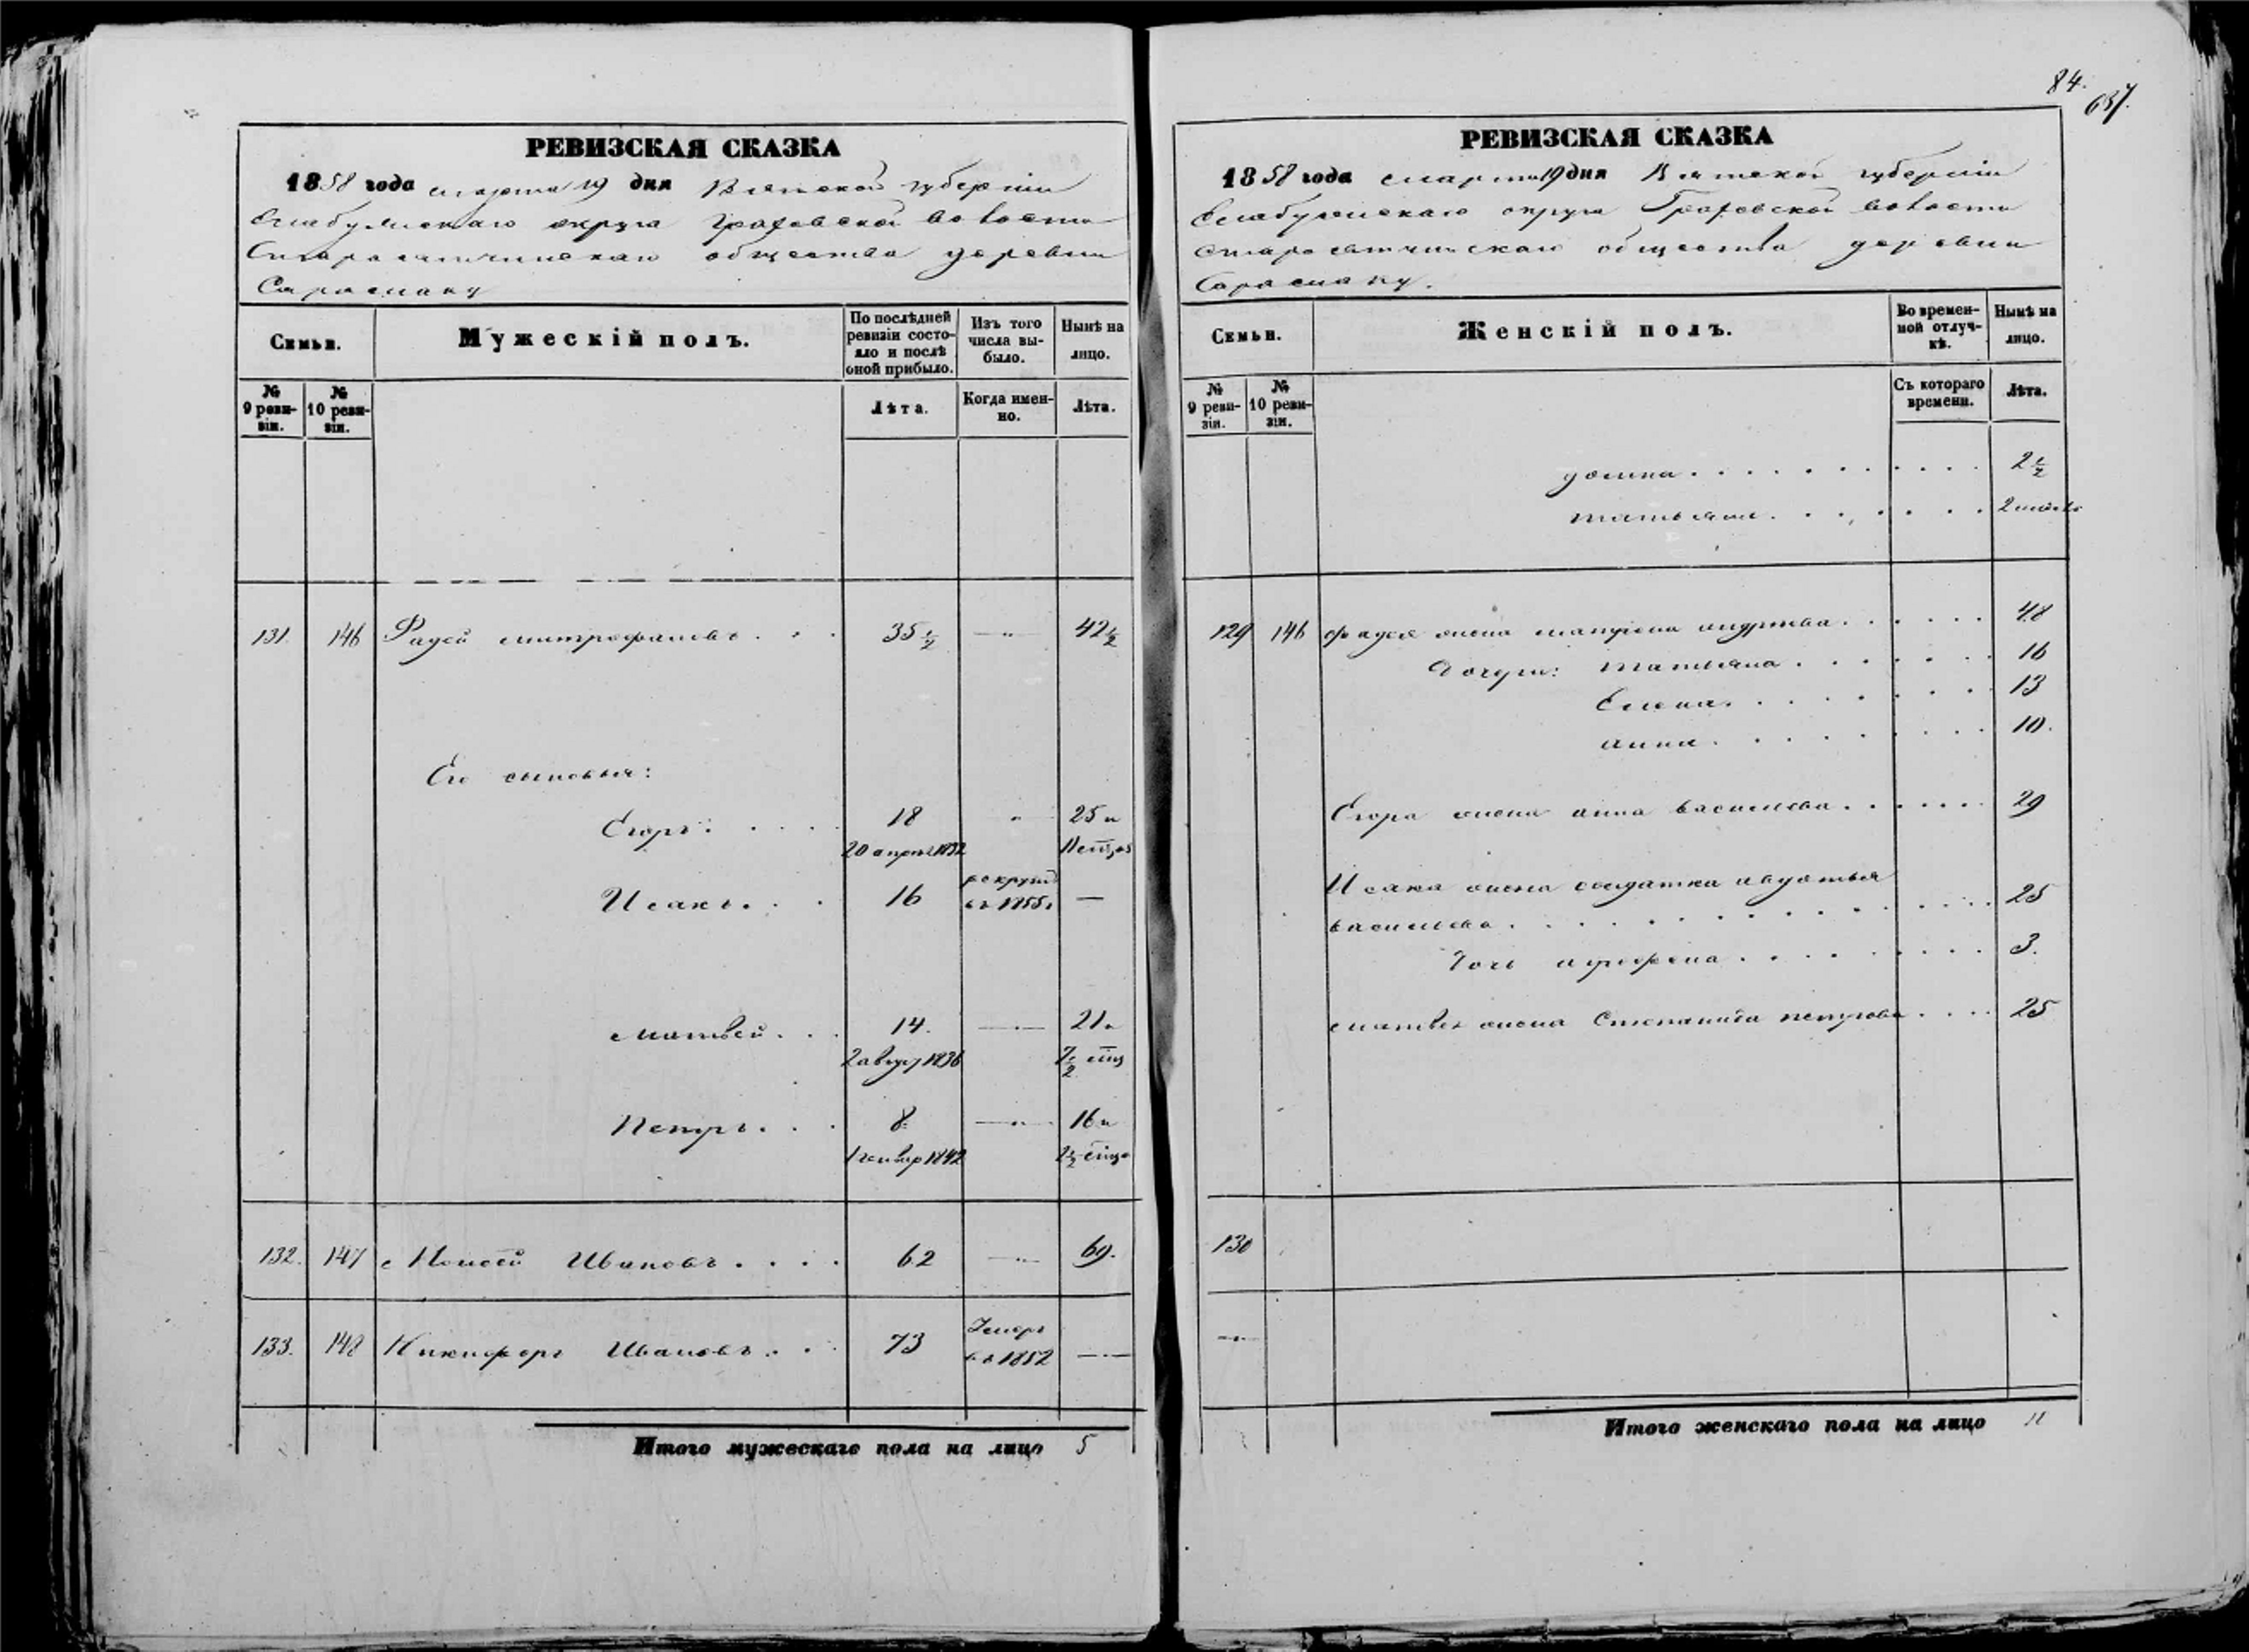 84.
637.
РЕВИЗСКАЯ СКАЗКА
1858 года марта 19 дня Вятской губернiи
Елабужскаго округа Граховской волости
общества деревни
Сарамаку
Семьи.
Мужескiй полъ.
По послѣдней ревизiи состояло и послѣ оной прибыло.
Изъ того числа выбыло.
Нынѣ на лицо.
№ 9 ревизiи.
№ 10 ревизiи.
Лѣта.
Когда именно.
Лѣта.
131. 146 Фадей Митрофановъ . . . 35½ —„— 42½
Его сыновья:
Егоръ . . . . 18 „ 25 и
20 апрѣ 1832 11 мцов
Исакъ . . . 16 рекрут въ 1855 —
Матвей . . . 14. —„— 21 и
2 август 1836 7½ мцъ
Петръ . . . 8. —„— 16 и
1 генвар 1842 2½ мцъ
132. 147 Моисей Ивановъ . . . . 62 —„— 69.
133. 148 Никифоръ Ивановъ . . . 73 Умеръ въ 1852 —„—
Итого мужескаго пола на лицо 5
РЕВИЗСКАЯ СКАЗКА
1858 года марта 19 дня Вятской губернiи
Елабужскаго округа Граховской волости
общества деревни
Сарамаку.
Семьи.
Женскiй полъ.
Во временной отлучкѣ.
Нынѣ на лицо.
№ 9 ревизiи.
№ 10 ревизiи.
Съ котораго времени.
Лѣта.
домна . . . . . . . . . . . 2½
татьяна . . . . . . . . 2
129 146 фадея жена матрена андреева . . . . . . 48
Дочери: татьяна . . . . . . . 16
Елена . . . . . . . . 13
анна . . . . . . . . . 10.
Егора жена анна васильева . . . . . . . 29
Исака жена солдатка авдотья
васильева . . . . . . . . . . . . . . 25
Дочь агрофена . . . . . . . . . 3.
матвея жена Степанида петрова . . . . 25
130
—„—
Итого женскаго пола на лицо 11